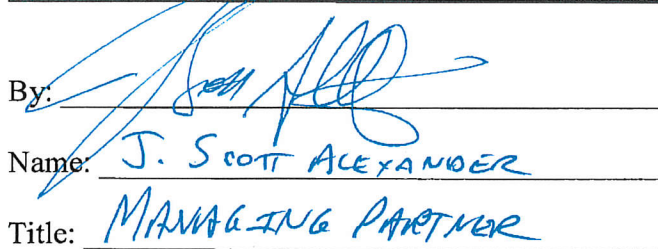 By: J Scott Alex
Name: J. SCOTT ALEXANDER
Title: MANAGING PARTNER